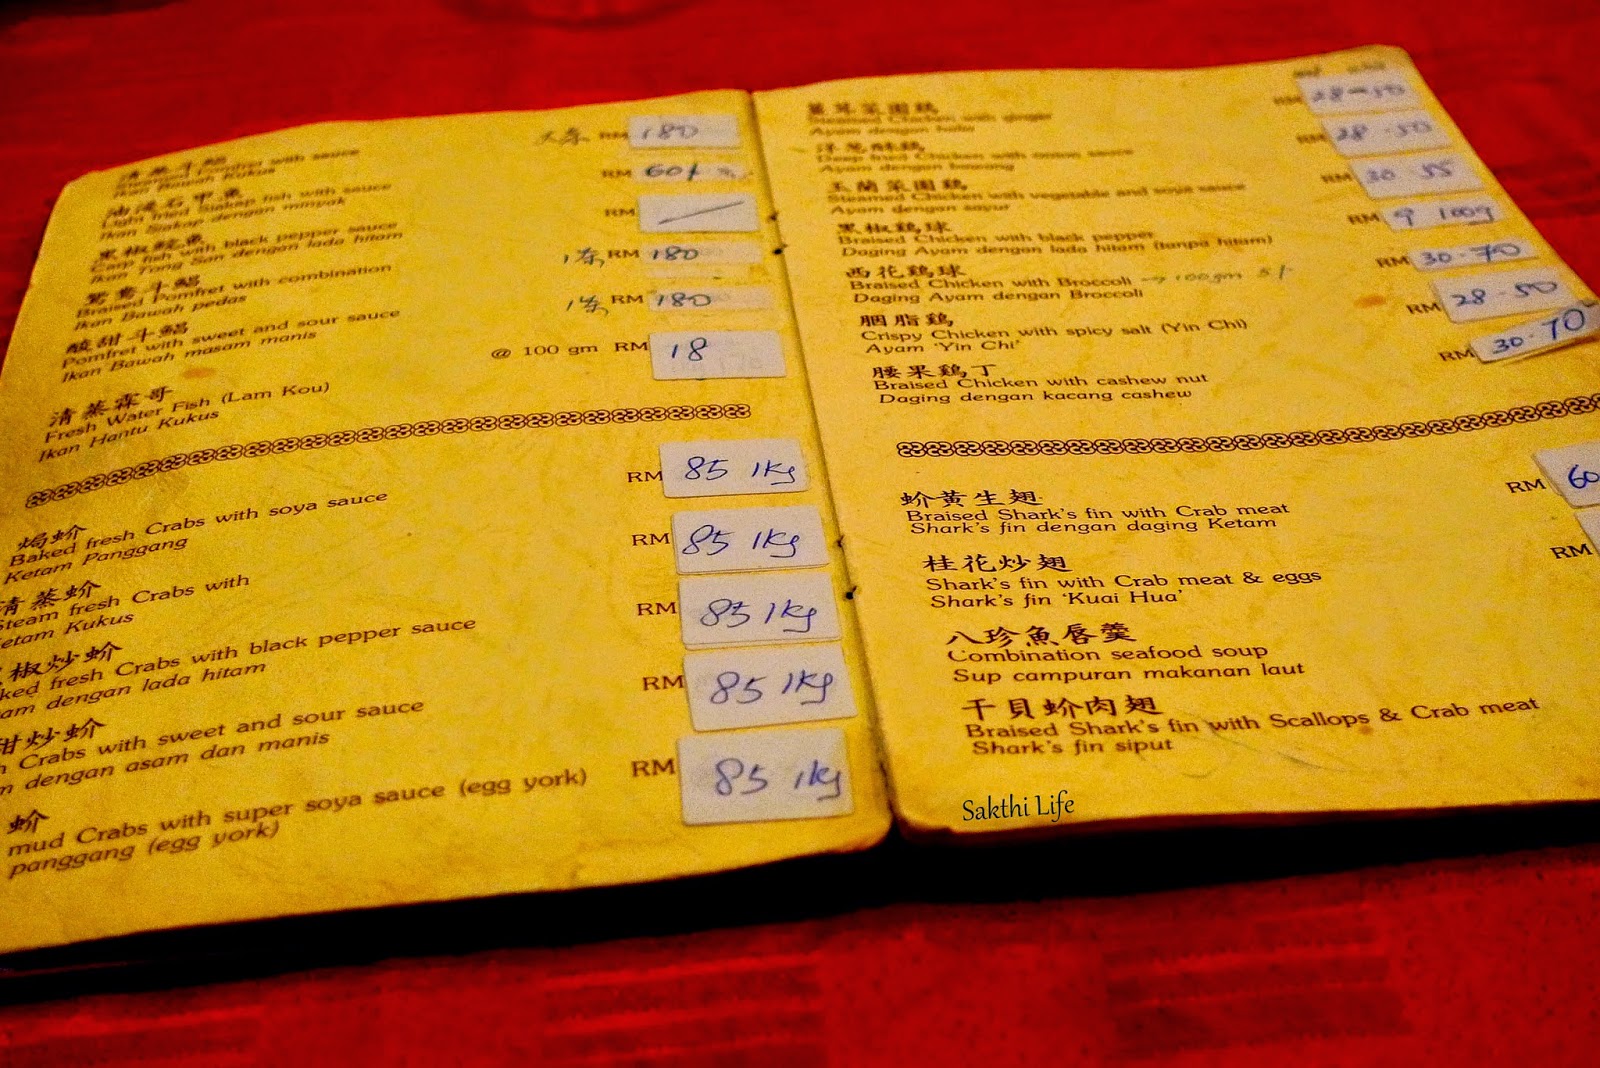 清蒸斗鯧
Steamed Pomfret with sauce
Ikan Bawah Kukus
RM 180
油浸石甲魚
Light fried Siakap fish with sauce
Ikan Siakap dengan minyak
RM 60/
黑椒鯇魚
Carp fish with black pepper sauce
Ikan Tong San dengan lada hitam
RM
鴛鴦斗鯧
Braised Pomfret with combination
Ikan Bawah pedas
RM 180
酸甜斗鯧
Pomfret with sweet and sour sauce
Ikan Bawah masam manis
RM 180
清蒸霖哥
Fresh Water Fish (Lam Kou)
Ikan Hantu Kukus
@ 100 gm RM 18
焗蚧
Baked fresh Crabs with soya sauce
Ketam Panggang
RM 85 1kg
清蒸蚧
Steam fresh Crabs with
etam Kukus
RM 85 1kg
椒炒蚧
ked fresh Crabs with black pepper sauce
am dengan lada hitam
RM 85 1kg
甜炒蚧
h Crabs with sweet and sour sauce
m dengan asam dan manis
RM 85 1kg
蚧
mud Crabs with super soya sauce (egg york)
panggang (egg york)
RM 85 1kg
薑茸菜園鷄
Steamed Chicken with ginger
Ayam dengan halia
RM 28-50
洋葱酥鷄
Deep fried Chicken with onion sauce
Ayam dengan bawang
RM 28-50
玉蘭菜園鷄
Steamed Chicken with vegetable and soya sauce
Ayam dengan sayur
RM 30 55
黑椒鷄球
Braised Chicken with black pepper
Daging Ayam dengan lada hitam (tanpa hitam)
RM 9 100g
西花鷄球
Braised Chicken with Broccoli → 100gm 8/
Daging Ayam dengan Broccoli
RM 30-70
胭脂鷄
Crispy Chicken with spicy salt (Yin Chi)
Ayam 'Yin Chi'
RM 28-50
腰果鷄丁
Braised Chicken with cashew nut
Daging dengan kacang cashew
RM 30-70
蚧黃生翅
Braised Shark's fin with Crab meat
Shark's fin dengan daging Ketam
RM 60
桂花炒翅
Shark's fin with Crab meat & eggs
Shark's fin 'Kuai Hua'
RM
八珍魚唇羹
Combination seafood soup
Sup campuran makanan laut
干貝蚧肉翅
Braised Shark's fin with Scallops & Crab meat
Shark's fin siput
Sakthi Life